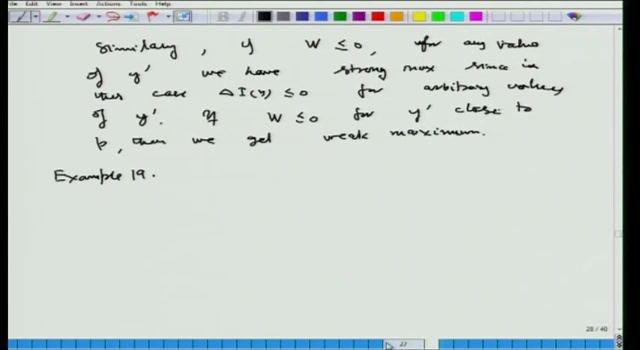 File Edit View Insert Actions Tools Help
Similary, if W ≤ 0, for any value
of y' we have strong max since in
this case ΔI(y) ≤ 0 for arbitrary values
of y'. If W ≤ 0 for y' close to
p, then we get weak maximum.
Example 19.
28 / 40
27